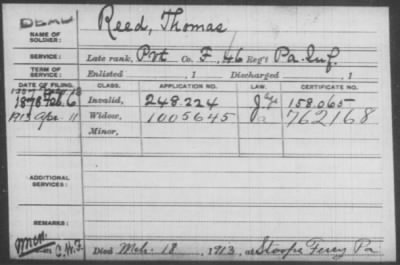 DEAD
NAME OF SOLDIER: Reed, Thomas
SERVICE: Late rank, Pvt Co. F, 46 Reg't Pa. Inf.
TERM OF SERVICE: Enlisted , 1 Discharged , 1
DATE OF FILING. CLASS. APPLICATION NO. LAW. CERTIFICATE NO.
1878 6 Invalid, 248.224 158.065
1913 Apr. 11 Widow, 1005645 762168
Minor,
ADDITIONAL SERVICES:
REMARKS:
C.W.F.
Died Mch. 18, 1913, at Stoops Ferry Pa